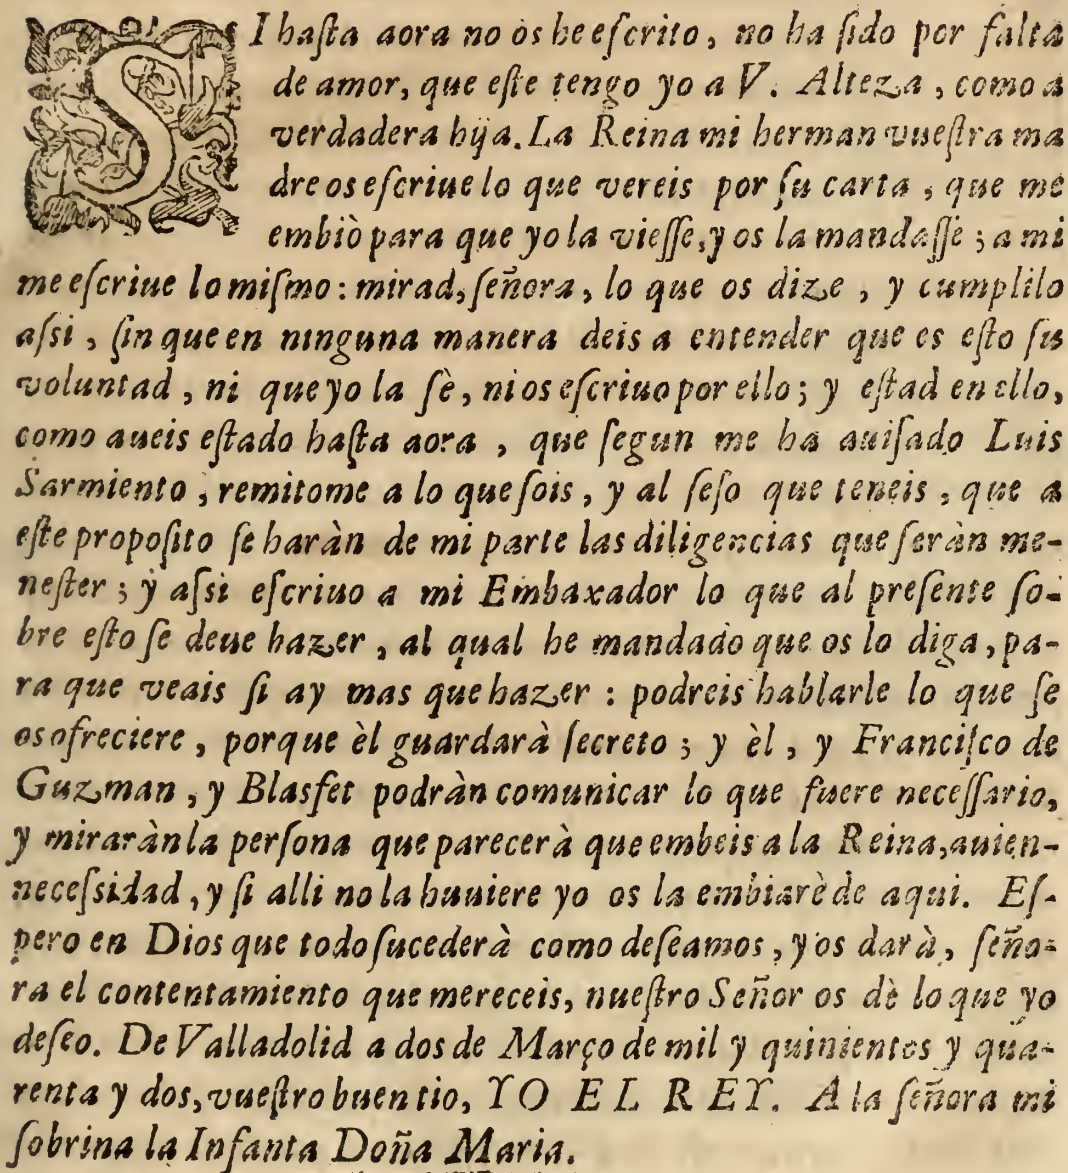 SI haſta aora no os he eſcrito, no ha ſido por falta
de amor, que eſte tengo yo a V. Alteza, como a
verdadera hija. La Reina mi herman vueſtra ma
dre os eſcriue lo que vereis por ſu carta, que me
embiò para que yo la vieſſe, y os la mandaſſe; a mi
me eſcriue lo miſmo: mirad, ſeñora, lo que os dize, y cumplilo
aſsi, ſin que en ninguna manera deis a entender que es eſto ſu
voluntad, ni que yo la ſè, ni os eſcriuo por ello; y eſtad en ello,
como aueis eſtado haſta aora, que ſegun me ha auiſado Luis
Sarmiento, remitome a lo que ſois, y al ſeſo que teneis, que a
eſte propoſito ſe haràn de mi parte las diligencias que ſeràn me-
neſter; y aſsi eſcriuo a mi Embaxador lo que al preſente ſo-
bre eſto ſe deue hazer, al qual he mandado que os lo diga, pa-
ra que veais ſi ay mas que hazer: podreis hablarle lo que ſe
os ofreciere, porque èl guardarà ſecreto; y èl, y Franciſco de
Guzman, y Blasfet podràn comunicar lo que fuere neceſſario,
y miraràn la perſona que parecerà que embeis a la Reina, auien-
neceſsidad, y ſi alli no la huuiere yo os la embiarè de aqui. Eſ-
pero en Dios que todo ſucederà como deſeamos, y os darà, ſeño-
ra el contentamiento que mereceis, nueſtro Señor os dè lo que yo
deſeo. De Valladolid a dos de Março de mil y quinientos y qua-
renta y dos, vueſtro buen tio, YO EL REY. A la ſeñora mi
ſobrina la Infanta Doña Maria.